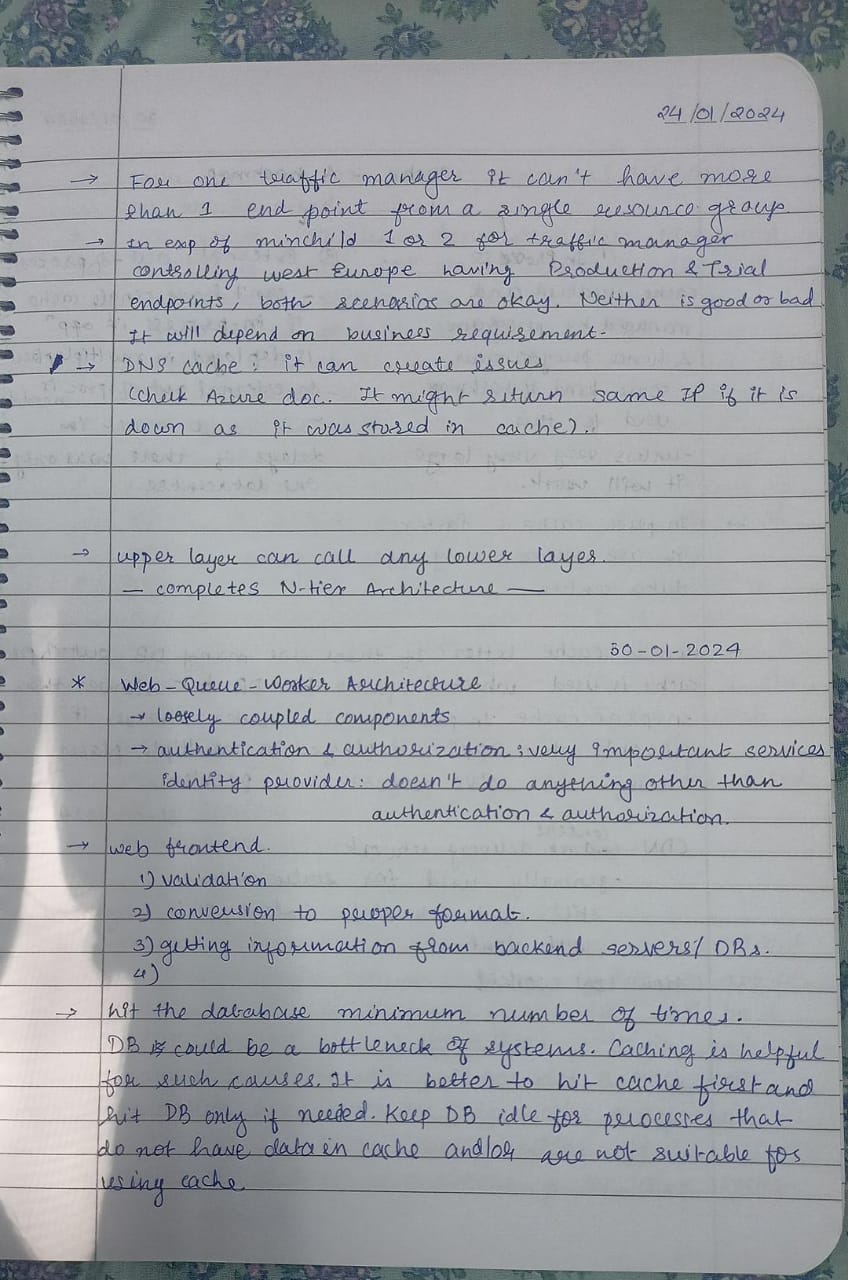 24/01/2024
→ For one traffic manager it can't have more
than 1 end point from a single resource group.
→ In exp of minchild 1 or 2 for traffic manager
controlling west Europe having Production & Trial
endpoints, both scenarios are okay. Neither is good or bad
It will depend on business requirement.
→ DNS cache: it can create issues
(check Azure doc. It might return same IP if it is
down as it was stored in cache).
→ upper layer can call any lower layer.
— completes N-tier Architecture —
30-01-2024
* Web-Queue-Worker Architecture
→ loosely coupled components
→ authentication & authorization: very important services
identity provider: doesn't do anything other than
authentication & authorization.
→ web frontend.
1) validation
2) conversion to proper format.
3) getting information from backend servers/ DBs.
4)
→ hit the database minimum number of times.
DB could be a bottleneck of systems. Caching is helpful
for such causes. It is better to hit cache first and
hit DB only if needed. Keep DB idle for processes that
do not have data in cache and/or are not suitable for
using cache